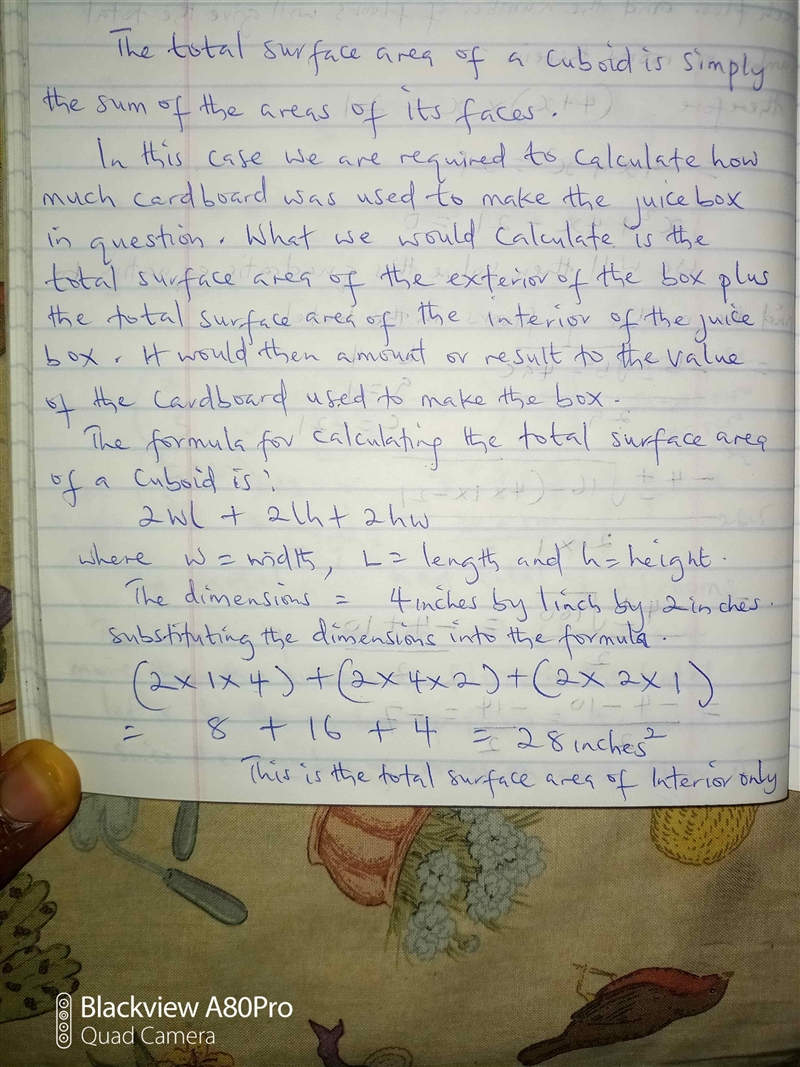 The total surface area of a cuboid is simply
the sum of the areas of its faces.
In this case we are required to calculate how
much cardboard was used to make the juice box
in question. What we would calculate is the
total surface area of the exterior of the box plus
the total surface area of the interior of the juice
box. It would then amount or result to the value
of the cardboard used to make the box.
The formula for calculating the total surface area
of a cuboid is:
2wl + 2lh + 2hw
where w = width, L = length and h = height.
The dimensions = 4 inches by 1 inch by 2 inches.
substituting the dimensions into the formula.
(2 x 1 x 4) + (2 x 4 x 2) + (2 x 2 x 1)
= 8 + 16 + 4 = 28 inches²
This is the total surface area of Interior only
Blackview A80Pro
Quad Camera